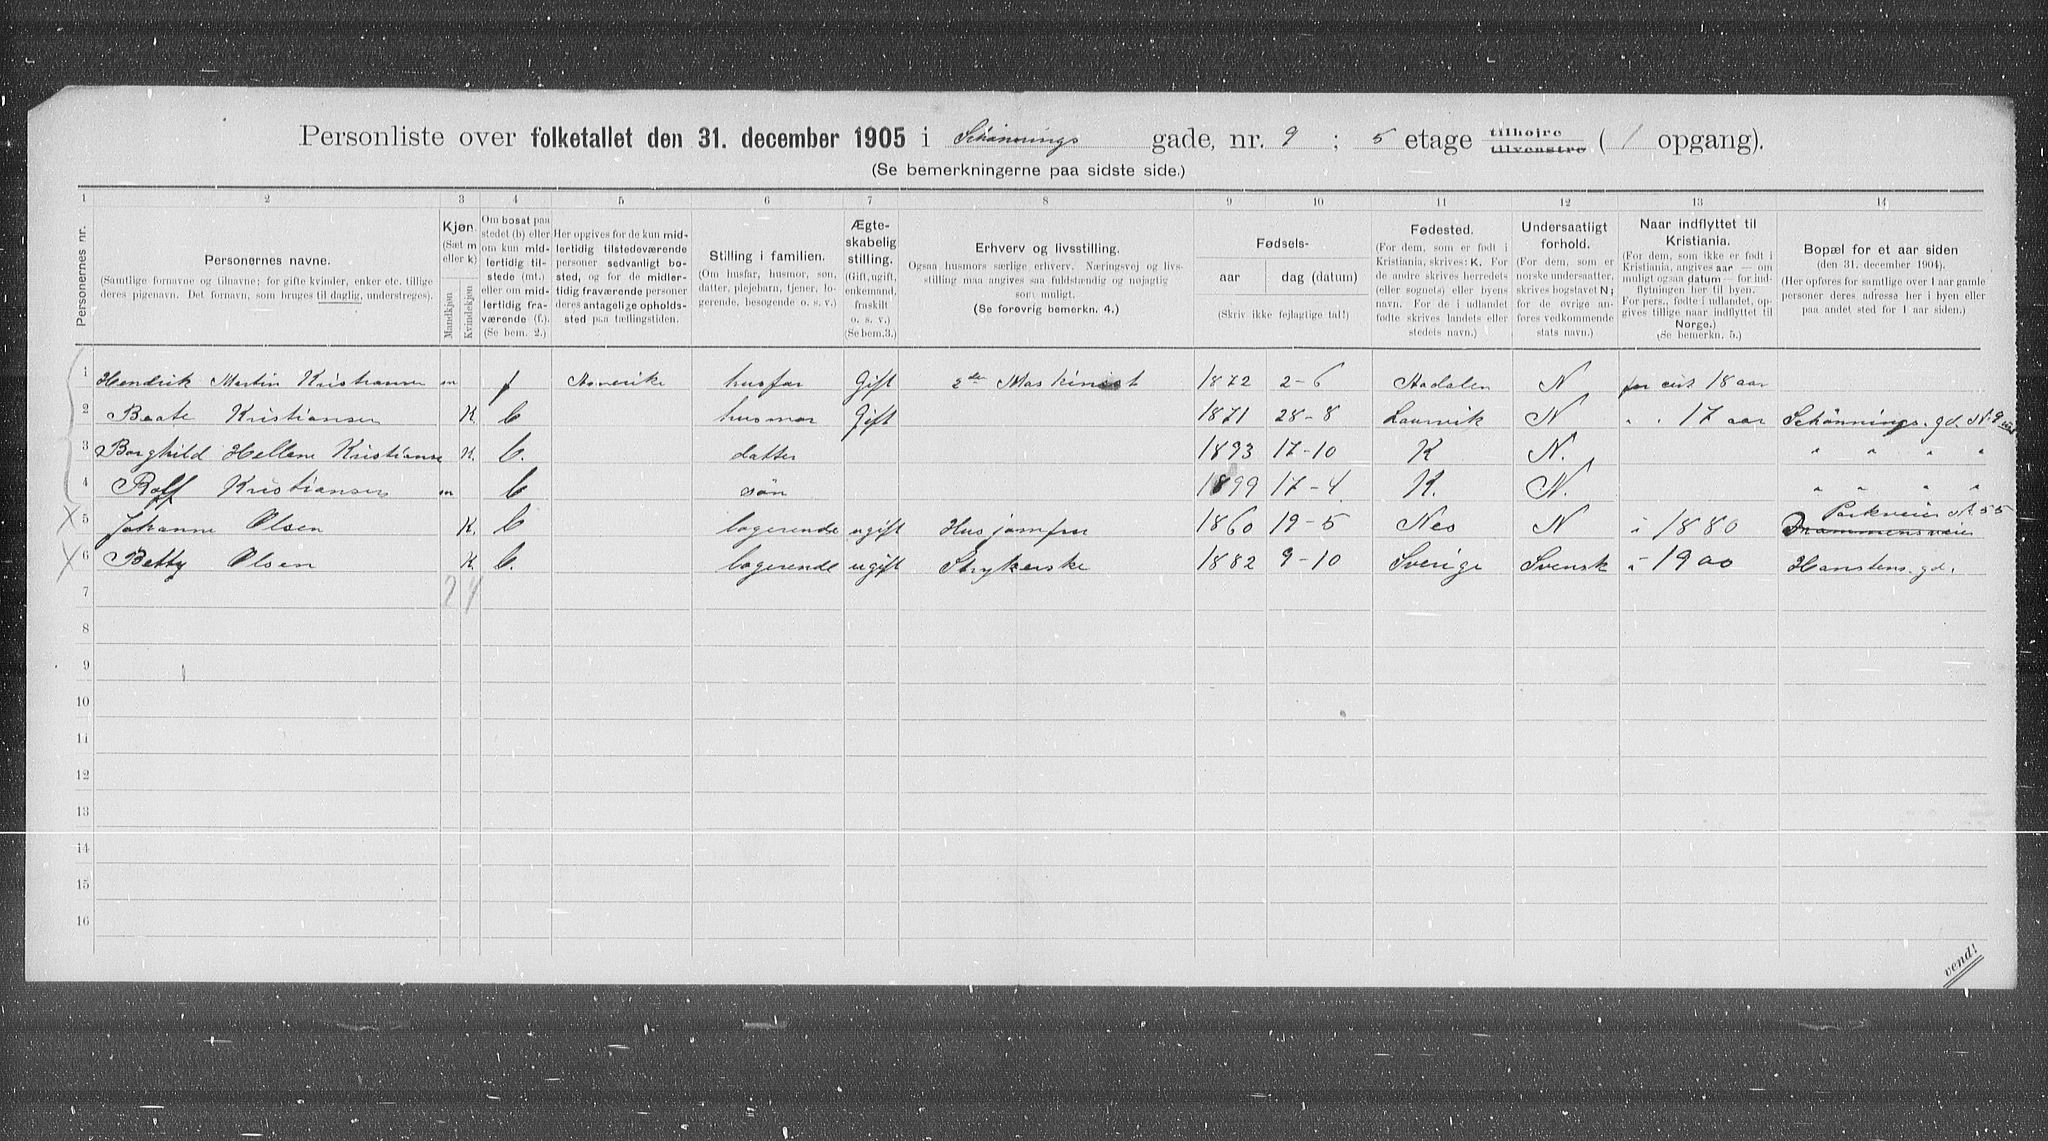 Personliste over folketallet den 31. december 1905 i Schønnings gade, nr. 9 ; 5 etage tilhøjre tilvenstre ( 1 opgang).
(Se bemerkningerne paa sidste side.)
1 2 3 4 5 6 7 8 9 10 11 12 13 14
Personernes nr.
Personernes navne.
(Samtlige fornavne og tilnavne; for gifte kvinder, enker etc. tillige
deres pigenavn. Det fornavn, som bruges til daglig, understreges).
Kjøn.
(Sæt m
eller k)
Mandkjøn
Kvindekjøn
Om bosat paa
stedet (b) eller
om kun mid-
lertidig til-
stede (mt.)
eller om mid-
lertidig fra-
værende (f.).
(Se bem. 2.)
Her opgives for de kun mid-
lertidig tilstedeværende
personer sedvanligt bo-
sted, og for de midler-
tidig fraværende personer
deres antagelige opholds-
sted paa tællingstiden.
Stilling i familien.
(Om husfar, husmor, søn,
datter, plejebarn, tjener, lo-
gerende, besøgende o. s. v.)
Ægte-
skabelig
stilling.
(Gift, ugift,
enkemand,
fraskilt
o. s. v.)
(Se bem. 3.)
Erhverv og livsstilling.
Ogsaa husmors særlige erhverv. Næringsvej og livs-
stilling maa angives saa fuldstændig og nøjagtig
som muligt.
(Se forøvrig bemerkn. 4.)
Fødsels-
aar dag (datum)
(Skriv ikke fejlagtige tal!)
Fødested.
(For dem, som er født i
Kristiania, skrives: K. For
de andre skrives herredets
(eller sognets) eller byens
navn. For de i udlandet
fødte skrives landets eller
stedets navn.)
Undersaatligt
forhold.
(For dem, som er
norske undersaatter,
skrives bogstavet N;
for de øvrige an-
føres vedkommende
stats navn.)
Naar indflyttet til
Kristiania.
(For dem, som ikke er født i
Kristiania, angives aar — om
muligt ogsaa datum — for ind-
flytningen her til byen.
For pers., fødte i udlandet, op-
gives tillige naar indflyttet til
Norge.)
(Se bemerkn. 5.)
Bopæl for et aar siden
(den 31. december 1904).
(Her opføres for samtlige over 1 aar gamle
personer deres adresse her i byen eller
paa andet sted for 1 aar siden.)
1 Hendrik Martin Kristiansen m f Amerika husfar Gift 2den Maskinist 1872 2-6 Aadalen N for cirk 18 aar
2 Beate Kristiansen K. b husmor Gift 1871 28-8 Laurvik N " " 17 aar Schønnings. gd. N. 9
3 Borghild Hellene Kristianse K. b. datter 1893 17-10 K N. " " " "
4 Rolf Kristiansen m b søn 1899 17-4 K. N. " " " "
Parkveien N 55
5 Johanne Olsen K. b logerende ugift Husjomfru 1860 19-5 Nes N i 1880 Drammensveien
6 Betty Olsen K. b. logerende ugift Strykerske 1882 9-10 Sverige Svensk i 1900 Hanstens. gd.
7 2 4
8
9
10
11
12
13
14
15
16
vend!